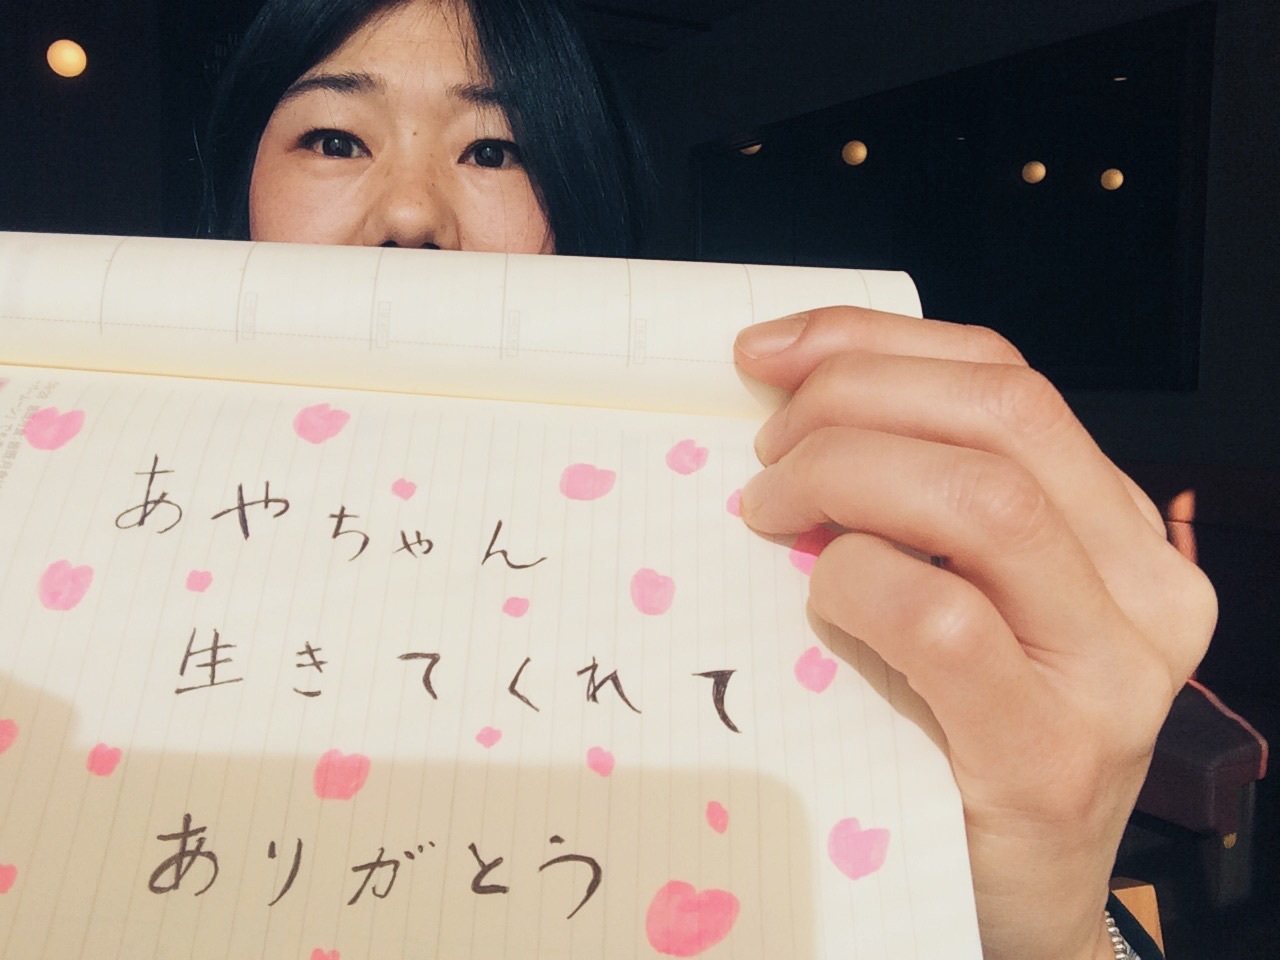 あやちゃん
生きてくれて
ありがとう